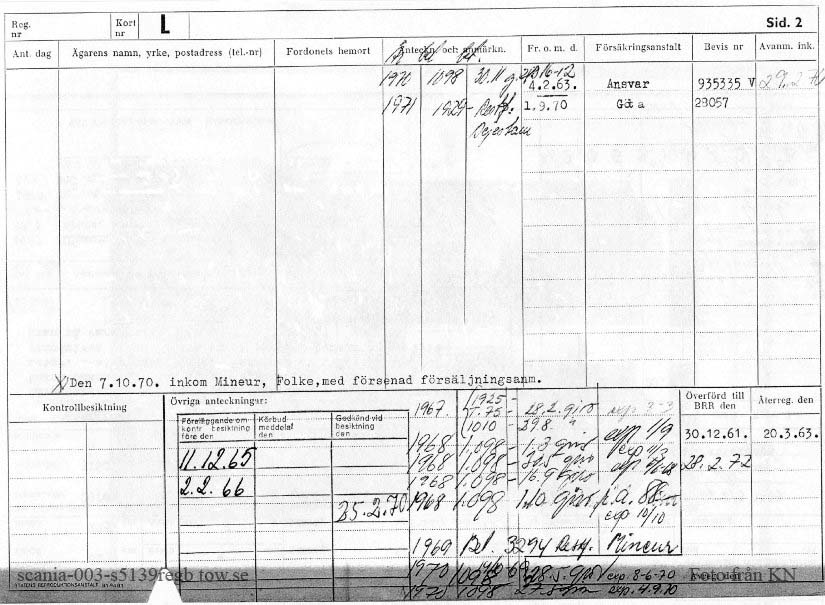 Reg. nr
Kort nr
L
Sid. 2
Ant. dag
Ägarens namn, yrke, postadress (tel.-nr)
Fordonets hemort
Anteckn. och anmärkn.
Fr. o. m. d.
Försäkringsanstalt
Bevis nr
Avanm. ink.
1970 1098 30.11
4.2.63. Ansvar 935335 V 29.2.72
1971 1929- Restf. 1.9.70 Göta 28057
Den 7.10.70. inkom Mineur, Folke,med försenad försäljningsanm.
Kontrollbesiktning
Övriga anteckningar:
Föreläggande om kontr besiktning före den
Körbud meddelat den
Godkänd vid besiktning den
Överförd till BRR den
Återreg. den
11.12.65
2.2.66
25.2.70
30.12.61. 20.3.63.
28.2.72
1967. 1925-
1.75- 28.2. giro exp.
1010 - 29.8. exp 1/9
1968 1.098 - 1.3 giro
1968 1.098-
1968 1.098 - 16.9
1968 1.098 1.10 exp 10/10
1969 Bel 3294 Restf. Mineur
1970 1098 28.5. exp. 8-6-70
1970 1098 27-8 exp. 4.9.70
Avreg. den
STATENS REPRODUKTIONSANSTALT
scania-003-s5139fegb tow.se
Foto från KN